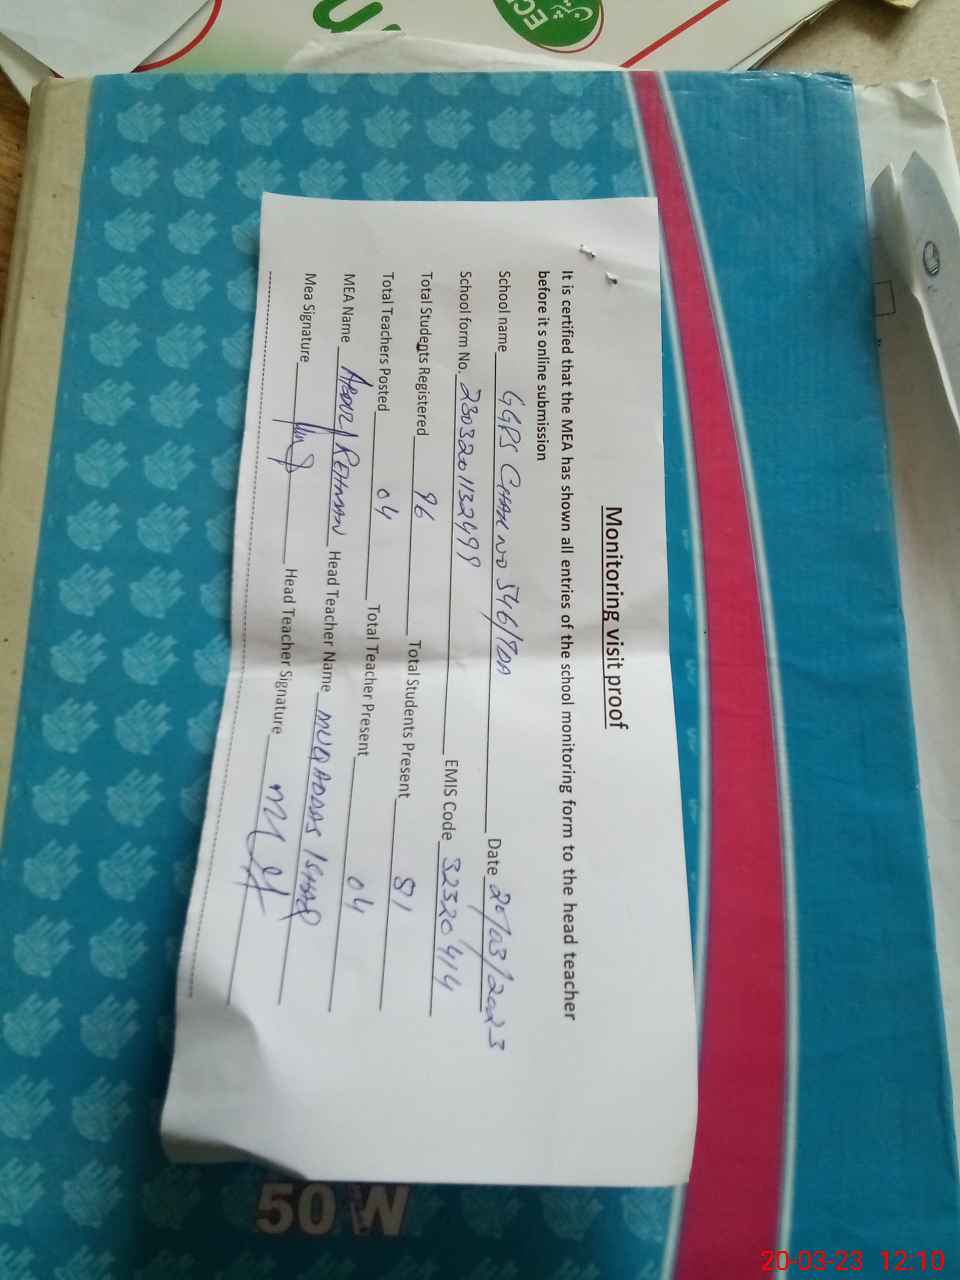 Monitoring visit proof
It is certified that the MEA has shown all entries of the school monitoring form to the head teacher
before it s online submission
School name GGPS CHAK NO 546/TDA Date 20/03/2023
School form No. 2303201132499 EMIS Code 32320414
Total Students Registered 96 Total Students Present 81
Total Teachers Posted 04 Total Teacher Present 04
MEA Name ABDUL REHMAN Head Teacher Name MUQADDAS ISHAQ
Mea Signature Head Teacher Signature
50 W
20-03-23 12:10